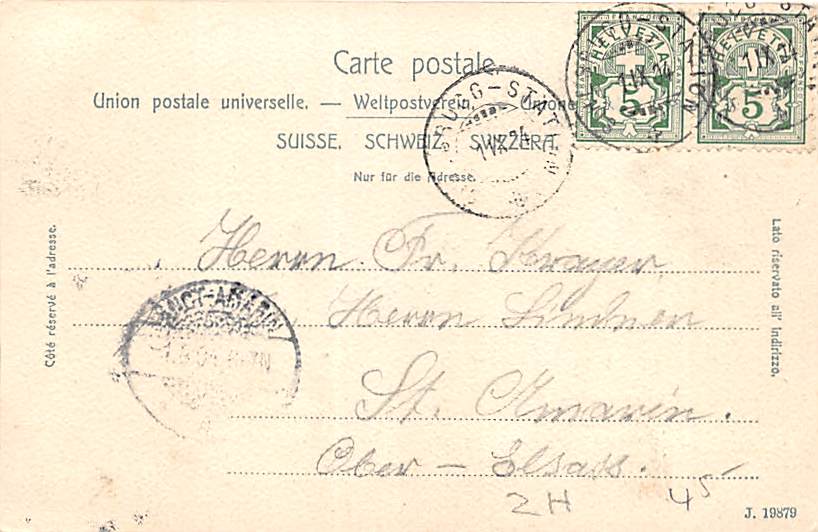 Carte postale.
Union postale universelle. — Weltpostverein. Unione
SUISSE. SCHWEIZ. SVIZZERA.
Nur für die Adresse.
HELVETIA
5
HELVETIA
5
Côté réservé à l'adresse.
Lato riservato all' indirizzo.
Herrn Fr. Krayer
Herrn Lindner
St. Amarin.
Ober – Elsass.
SANCT-AMARIN
2H 45
J. 19879